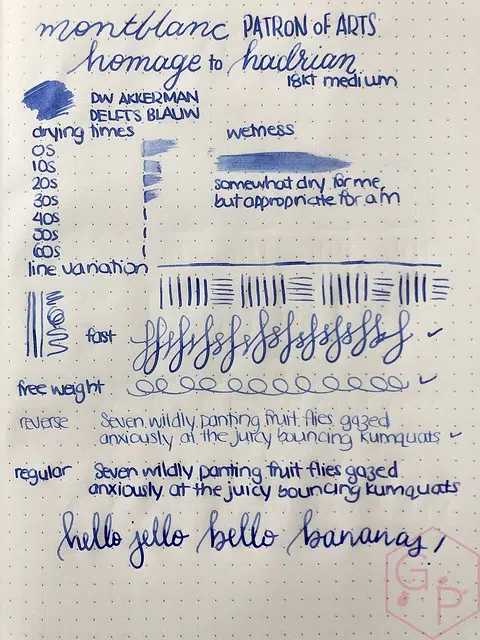 montblanc PATRON of ARTS
homage to hadrian
18kt medium
DW AKKERMAN
DELFTS BLAUW
drying times
0S
10S
20S
30S
40S
50S
60S
wetness
somewhat dry for me,
but appropriate for a m
line variation
fast
free weight
reverse Seven wildly panting fruit flies gazed
anxiously at the juicy bouncing kumquats
regular Seven wildly panting fruit flies gazed
anxiously at the juicy bouncing kumquats
hello jello bello bananas!
G
P